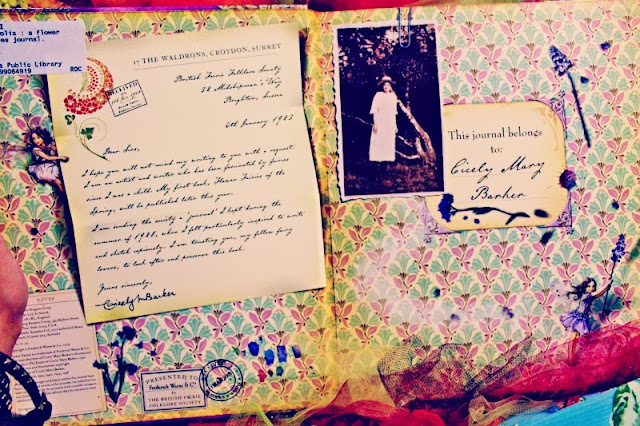 olis : a flower
journal.
Public Library
99064919 ROC
17 THE WALDRONS, CROYDON, SURREY
RECEIVED
British Fairie Folklore Society
38 Midshipman's Way
Brighton, Sussex
6th January 1923
Dear Sirs,
I hope you will not mind my writing to you with a request.
I am an artist and writer who has been fascinated by fairies
since I was a child. My first book, Flower Fairies of the
Spring, will be published later this year.
I am sending the society a journal I kept during the
summer of 1922, when I felt particularly inspired to write
and sketch copiously. I am trusting you, my fellow fairy
lovers, to look after and preserve this book.
Yours sincerely,
Cicely M Barker
NOTES
PRESENTED TO
Frederick Warne & Co
BY
THE BRITISH FAERIE
FOLKLORE SOCIETY
This journal belongs
to:
Cicely Mary
Barker